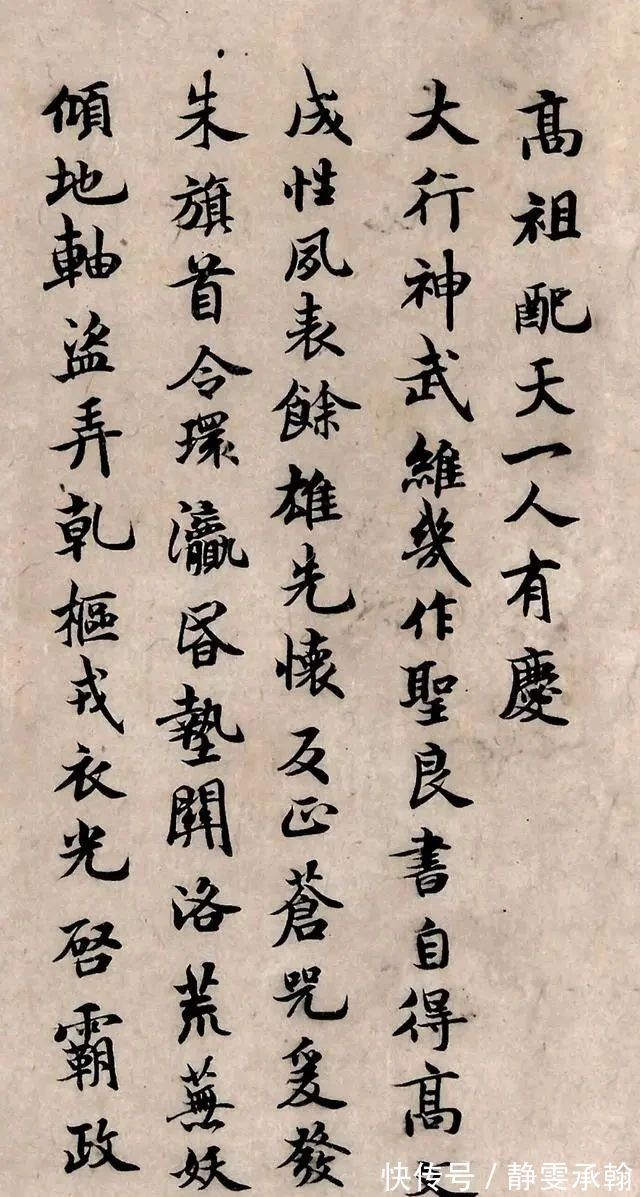 高祖配天一人有慶
大行神武維幾作聖良書自得高
成性夙表餘雄先懷反正蒼兕爰發
朱旗首令環瀛昏墊關洛荒蕪妖
傾地軸盜弄乾樞戎衣光啓霸政
快传号／静雯承翰